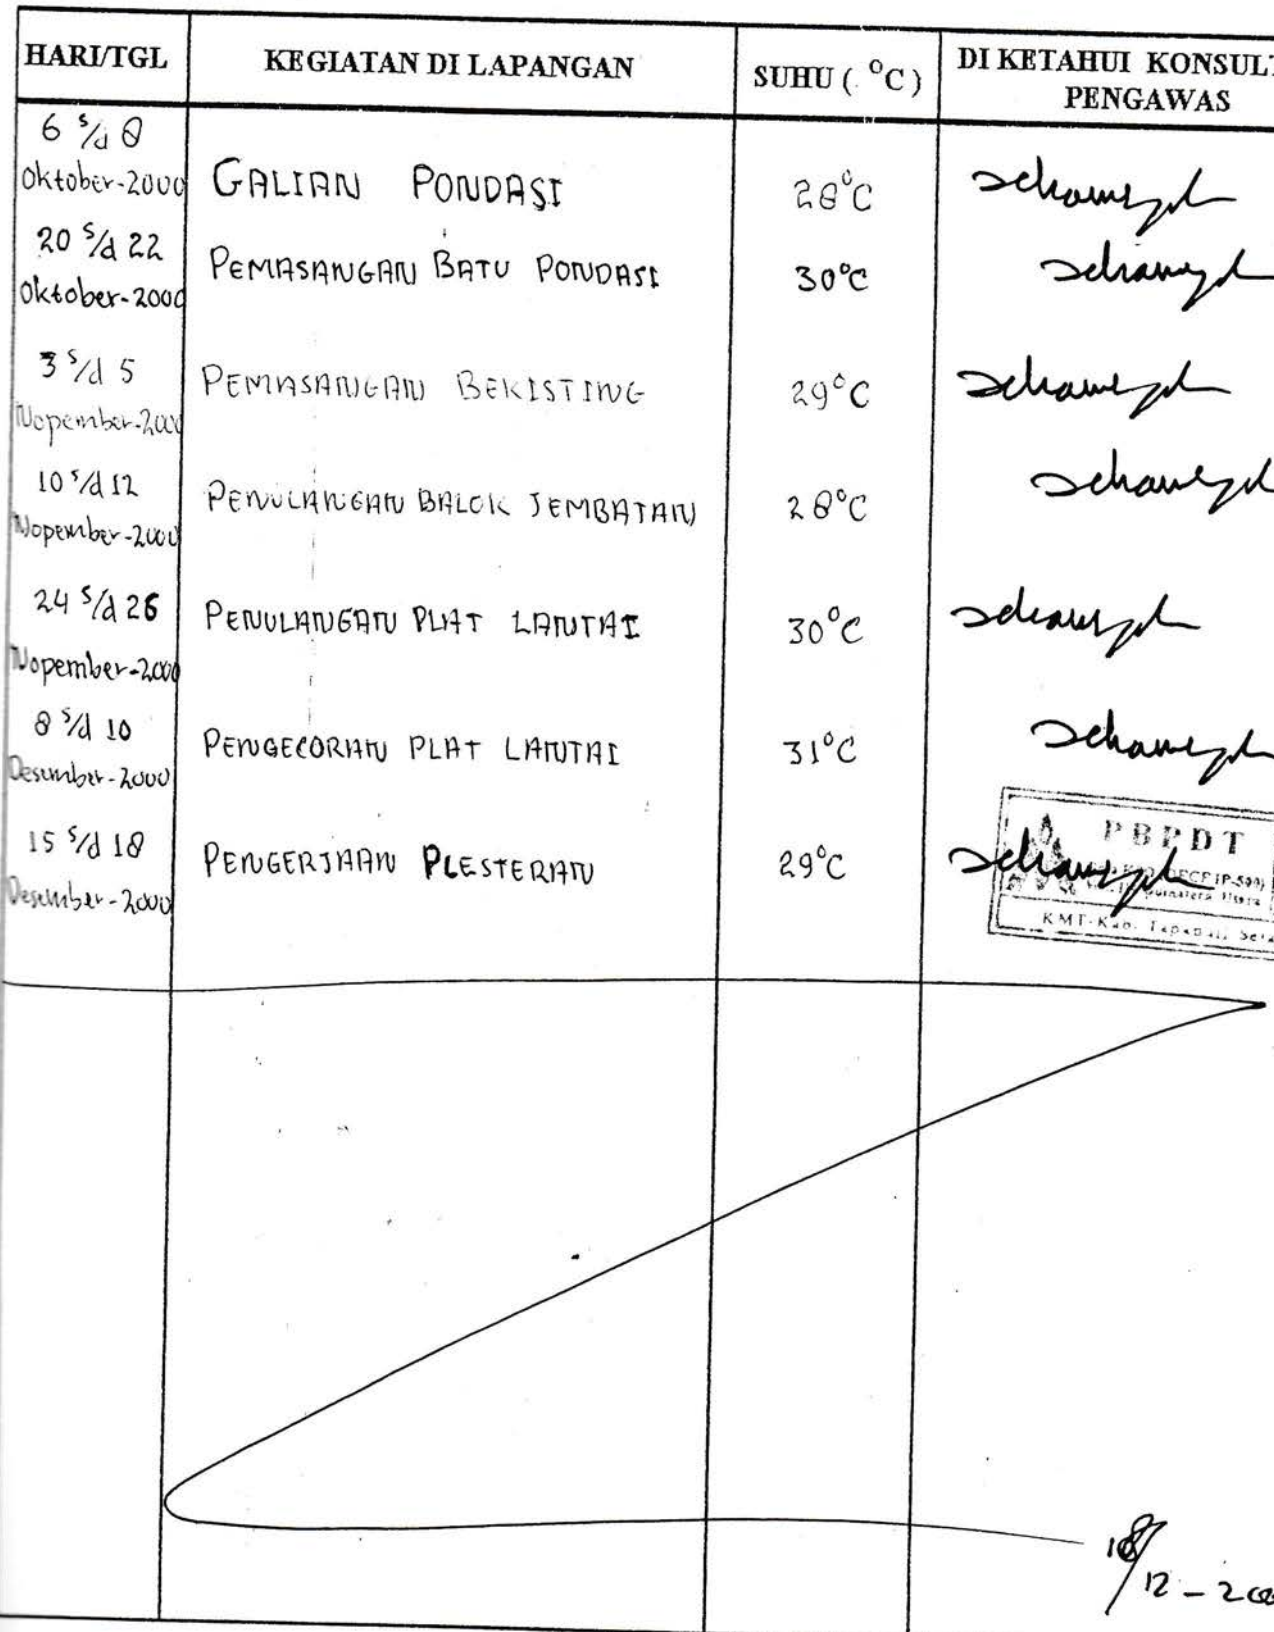 HARI/TGL KEGIATAN DI LAPANGAN SUHU ( °C ) DI KETAHUI KONSULT
PENGAWAS
6 s/d 8
Oktober-2000 GALIAN PONDASI 28°C
20 s/d 22
Oktober-2000 PEMASANGAN BATU PONDASI 30°C
3 s/d 5
Nopember-2000 PEMASANGAN BEKISTING 29°C
10 s/d 12
Nopember-2000 PENULANGAN BALOK JEMBATAN 28°C
24 s/d 26
Nopember-2000 PENULANGAN PLAT LANTAI 30°C
8 s/d 10
Desember-2000 PENGECORAN PLAT LANTAI 31°C
15 s/d 18
Desember-2000 PENGERJAAN PLESTERAN 29°C
PBPDT
(P-500)
Sumatera Utara
KMT-Kab. Tapanuli Sela
18/12-200